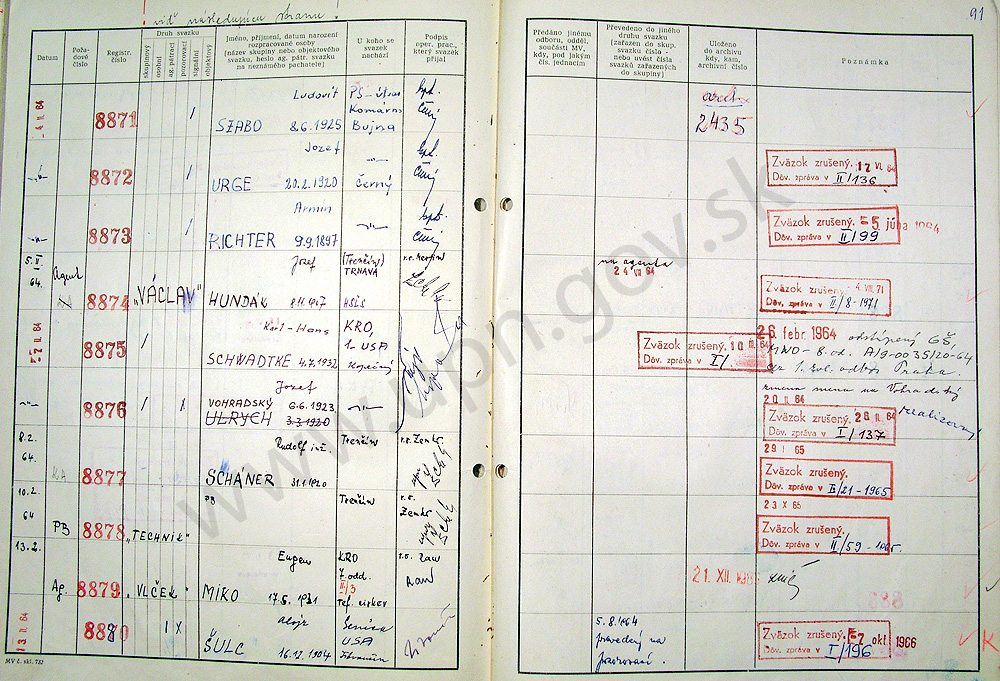 viď následujúcu stranu!
91
Datum
Pořadové číslo
Registr. číslo
Druh svazku
skupinový
osobní
ag. pátrací
pozorovací
signální
objektový
Jméno, příjmení, datum narození rozpracované osoby (název skupiny nebo objektového svazku, heslo ag. pátr. svazku na neznámého pachatele)
U koho se svazek nachází
Podpis oper. prac., který svazek přijal
Předáno jinému odboru, odděl. součásti MV, kdy, pod jakým čís. jednacím
Převedeno do jiného druhu svazku (zařazen do skup. svazku číslo - nebo uvést čísla svazků zařazených do skupiny)
Uloženo do archivu kdy, kam, archivní číslo
Poznámka
4 II. 64
8871
Ludovít
SZABO 8.6.1925
PS-útvar
Komárno
Bujna
kpt.
Činý
arch.
2435
8872
Jozef
URGE 20.2.1920
Černý
kpt.
Činý
Zväzok zrušený. 12 VI. 64
Dôv. zpráva v II/136
8873
Armin
RICHTER 9.9.1897
kpt.
Činý
Zväzok zrušený. -5. júna 1964
Dôv. zpráva v II/99
5.II 64.
Agent
8874
"VÁCLAV"
Jozef
HUNDÁK
(Trenčín)
TRNAVA
na agenta
24 VII 64
Zväzok zrušený 4. VII. 71
Dôv. zpráva v II/8-1971
-7 II. 64
8875
Karl-Hans
SCHWADTKE 4.7.1932
KRO,
1. USA
Kopečný
Zväzok zrušený. 10 III. 64
Dôv. zpráva v I/
26 febr. 1964 odstúpený GŠ,
MNO - 8. od. A/9-0035/20-64
8876
Jozef
VOHRADSKÝ 6.6.1923
ULRYCH 3.3.1920
zmena mena na Vohradský
20 II. 64
realizovaný
Zväzok zrušený. 28 II. 64
Dôv. zpráva v I/137
8.2. 64.
KA
8877
Rudolf inž.
SCHÁNER 31.1.1920
Trenčín
r.s. Zemkr.
29 I 65
Zväzok zrušený.
Dôv. zpráva v II/21-1965
10.2. 64
PB
8878
"TECHNIK"
PB
Trenčín
r.s.
Zemkr
23 X 65
Zväzok zrušený.
Dôv. zpráva v II./59-1965.
13.2.
Ag.
8879
"VLČEK"
Eugen
MIKO 17.5.1921
KRO
7. odd.
II/3
Ref. cirkev
21. XII. 1965
888
13 II. 64
8880
Alojz
ŠULC 16.12.1904
Senica
USA
5.8.1964
prevedený na
pozorovaní.
Zväzok zrušený. -7 okt. 1966
Dôv. zpráva v I/196
K
MV č. skl. 732
www.upn.gov.sk